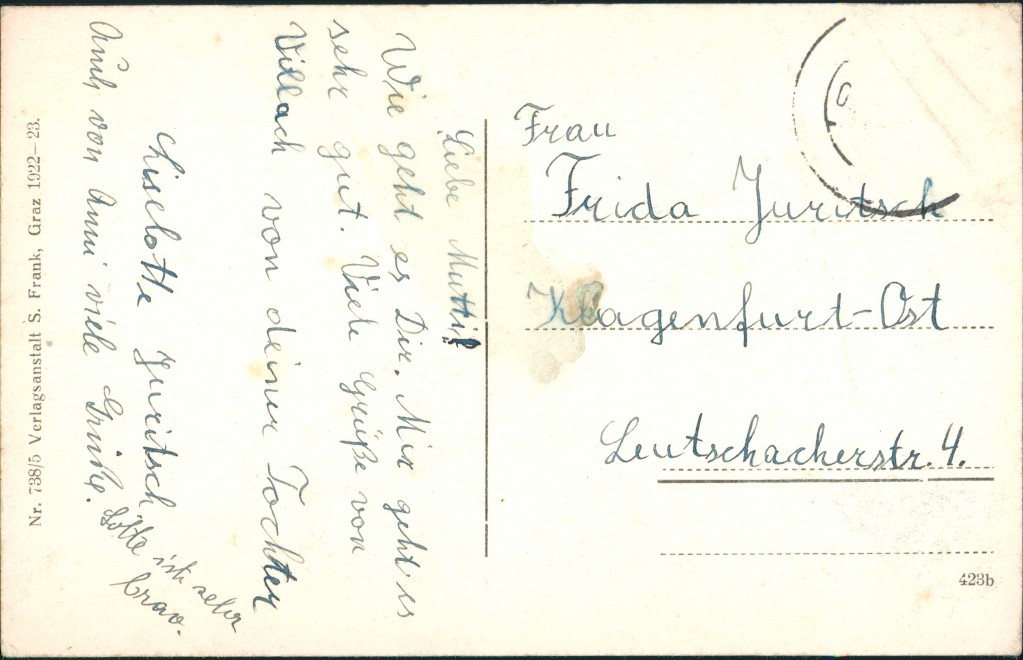 Liebe Mutti!
Wie geht es Dir. Mir geht's
sehr gut. Viele Grüße von
Villach von deiner Tochter
Liselotte Juritsch
Auch von Anni viele Grüße.
Lotte ist sehr
brav.
Nr. 738/5 Verlagsanstalt S. Frank, Graz 1922—23.
Frau
Frida Juritsch
Klagenfurt-Ost
Leutschacherstr. 4.
423b